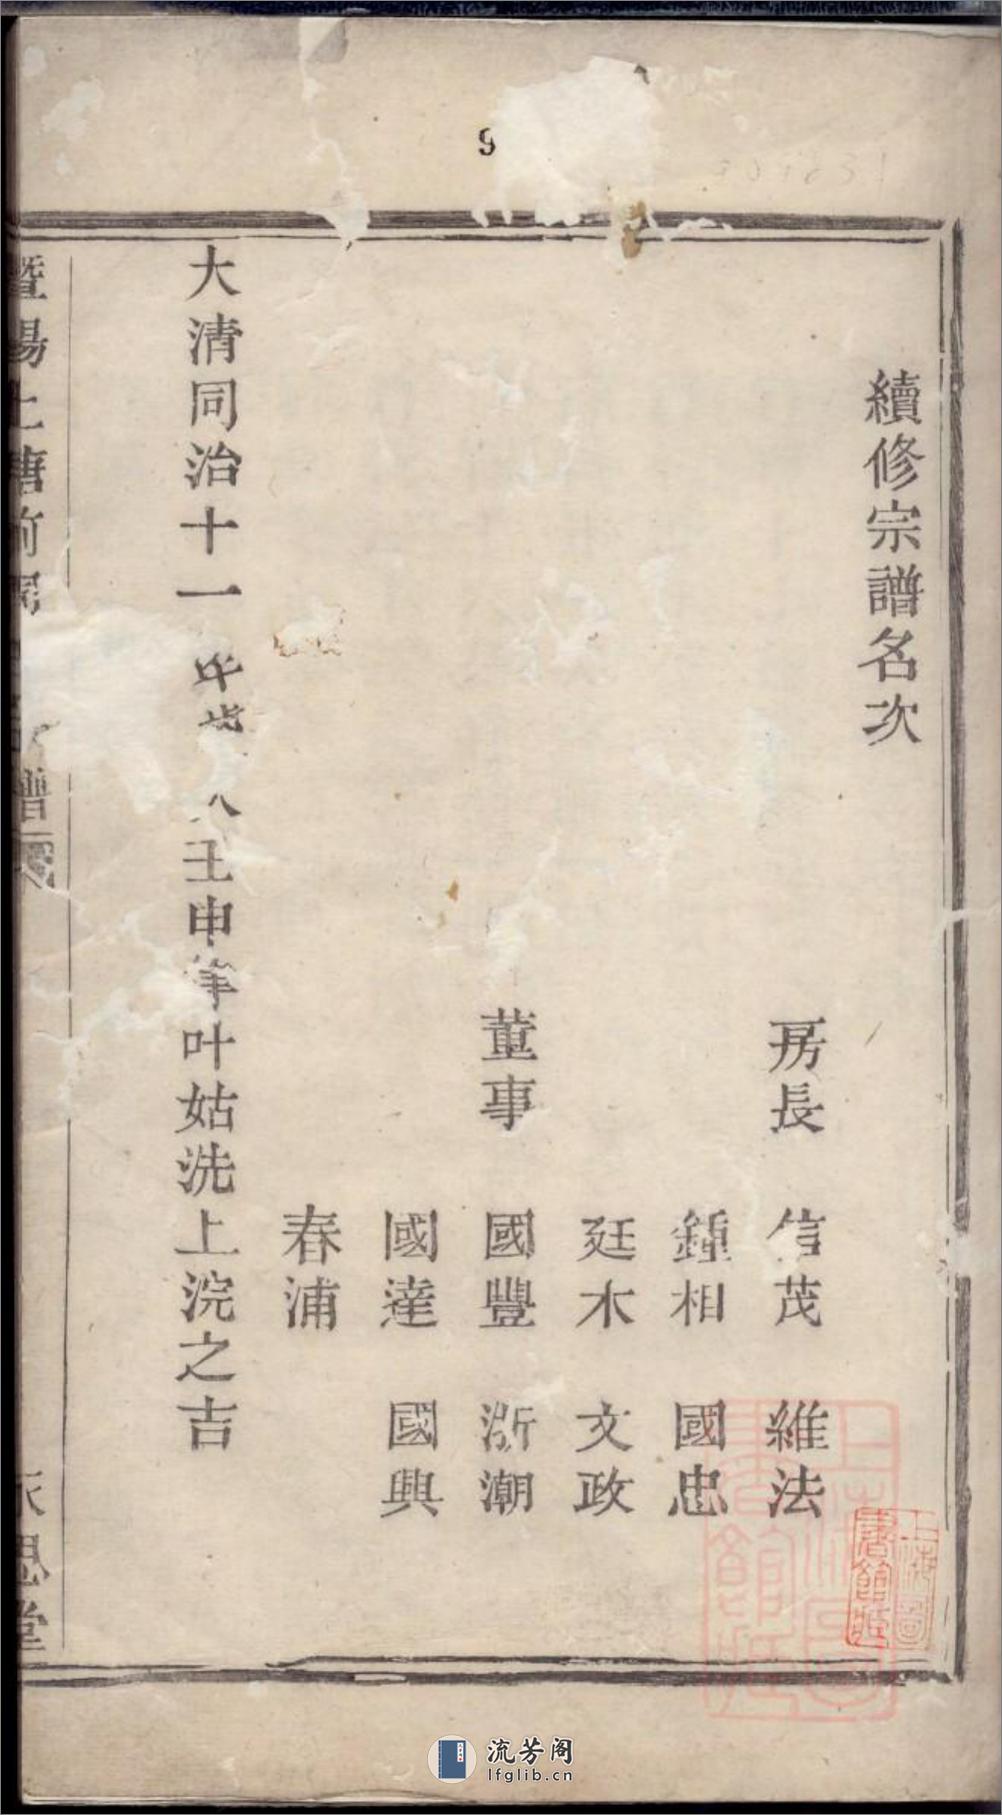 9
續修宗譜名次
房長　信茂　維法
鍾相　國忠
廷木　文政
董事　國豐　浙潮
國達　國興
春浦
大清同治十一年歲　　壬申年叶姑洗上浣之吉
暨陽上　　　　譜
思堂
上海圖書館藏
上海圖書館藏
流芳阁
lfglib.cn